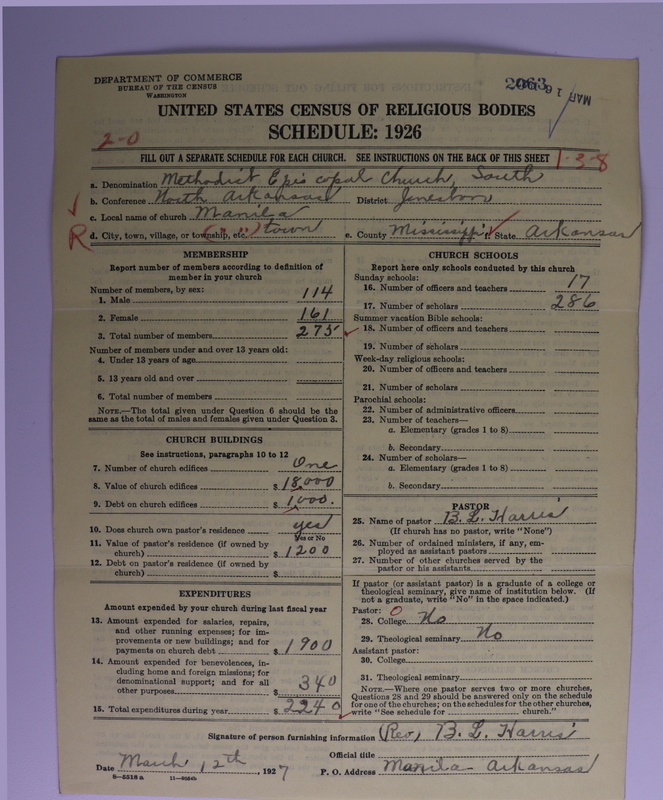 DEPARTMENT OF COMMERCE
BUREAU OF THE CENSUS
WASHINGTON
2063
MAR 16
UNITED STATES CENSUS OF RELIGIOUS BODIES
SCHEDULE: 1926
2-0
FILL OUT A SEPARATE SCHEDULE FOR EACH CHURCH. SEE INSTRUCTIONS ON THE BACK OF THIS SHEET
1-3-8
a. Denomination Methodist Episcopal Church, South
b. Conference North Arkansas District Jonesboro
c. Local name of church Manila
R d. City, town, village, or township, etc. (" ") town e. County Mississippi f. State Arkansas
MEMBERSHIP
Report number of members according to definition of
member in your church
Number of members, by sex:
1. Male 114
2. Female 161
3. Total number of members 275
Number of members under and over 13 years old:
4. Under 13 years of age
5. 13 years old and over
6. Total number of members
NOTE.—The total given under Question 6 should be the
same as the total of males and females given under Question 3.
CHURCH BUILDINGS
See instructions, paragraphs 10 to 12
7. Number of church edifices One
8. Value of church edifices $ 18,000
9. Debt on church edifices $ 1,000.
10. Does church own pastor's residence yes
Yes or No
11. Value of pastor's residence (if owned by
church) $ 1200
12. Debt on pastor's residence (if owned by
church) $
EXPENDITURES
Amount expended by your church during last fiscal year
13. Amount expended for salaries, repairs,
and other running expenses; for im-
provements or new buildings; and for
payments on church debt $ 1900
14. Amount expended for benevolences, in-
cluding home and foreign missions; for
denominational support; and for all
other purposes $ 340
15. Total expenditures during year $ 2240
CHURCH SCHOOLS
Report here only schools conducted by this church
Sunday schools:
16. Number of officers and teachers 17
17. Number of scholars 286
Summer vacation Bible schools:
18. Number of officers and teachers
19. Number of scholars
Week-day religious schools:
20. Number of officers and teachers
21. Number of scholars
Parochial schools:
22. Number of administrative officers
23. Number of teachers—
a. Elementary (grades 1 to 8)
b. Secondary
24. Number of scholars—
a. Elementary (grades 1 to 8)
b. Secondary
PASTOR
25. Name of pastor B. L. Harris
(If church has no pastor, write "None")
26. Number of ordained ministers, if any, em-
ployed as assistant pastors
27. Number of other churches served by the
pastor or his assistants
If pastor (or assistant pastor) is a graduate of a college or
theological seminary, give name of institution below. (If
not a graduate, write "No" in the space indicated.)
Pastor: 0
28. College No
29. Theological seminary No
Assistant pastor:
30. College
31. Theological seminary
NOTE.—Where one pastor serves two or more churches,
Questions 28 and 29 should be answered only on the schedule
for one of the churches; on the schedules for the other churches,
write "See schedule for church."
Signature of person furnishing information (Rev.) B. L. Harris
Official title
Date March 12th, 1927 P. O. Address Manila Arkansas